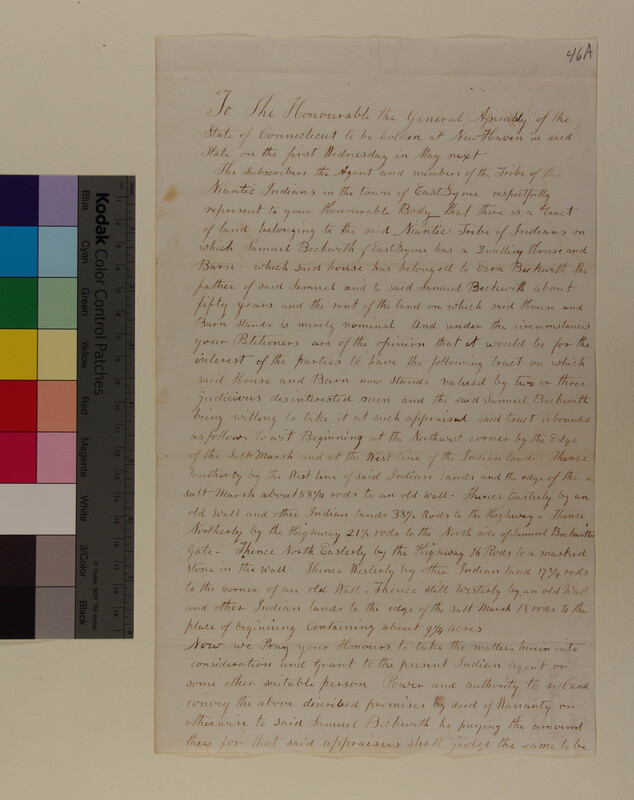 46A
To The Honourable the General Assembly of the
State of Connecticut to be holden at New Haven in said
State on the first Wednesday in May next
The subscribers the Agent and members of the Tribe of the
Niantic Indians in the town of East Lyme respectfully
represent to your Honourable Body that there is a tract
of land belonging to the said Niantic Tribe of Indians on
which Samuel Beckwith of East Lyme has a Dwelling House and
Barn - which said house has belonged to Ezra Beckwith the
father of said Samuel and to said Samuel Beckwith about
fifty years and the rent of the land on which said House and
Barn stands is merely nominal And under the circumstances
your Petitioners are of the opinion that it would be for the
interest of the parties to have the following tract on which
said House and Barn now stands valued by two or three
judicious disinterested men and the said Samuel Beckwith
being willing to take it at such appraisal said tract is bounded
as follows to wit Beginning at the Northwest corner by the Edge
of the Salt Marsh and at the West line of the Indian lands - Thence
Southerly by the West line of said Indian lands and the edge of the
salt Marsh about 58 1/4 rods to an old wall - Thence Easterly by an
old Wall and other Indian lands 38 1/2 Rods to the Highway - Thence
Northerly by the Highway 21 1/2 rods to the North side of Samuel Beckwiths
Gate - Thence North Easterly by the Highway 16 Rods to a marked
stone in the wall - Thence Westerly by other Indian land 17 3/4 rods
to the corner of an old Wall, Thence still Westerly by an old Wall
and other Indian lands to the edge of the salt Marsh 18 rods to the
place of beginning Containing about 9 1/4 acres
Now we Pray your Honours to take the matters herein into
consideration and Grant to the present Indian Agent or
some other suitable person Power and authority to sell and
convey the above described premises by deed of Warranty or
otherwise to said Samuel Beckwith he paying the amount
there for that said appraisers shall judge the same to be
Kodak
Color Control Patches
Blue
Cyan
Green
Yellow
Red
Magenta
White
3/Color
Black